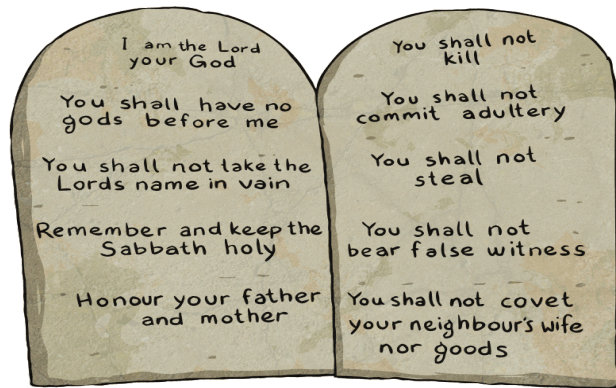 I am the Lord
your God
You shall have no
gods before me
You shall not take the
Lords name in vain
Remember and keep the
Sabbath holy
Honour your father
and mother
You shall not
kill
You shall not
commit adultery
You shall not
steal
You shall not
bear false witness
You shall not covet
your neighbour's wife
nor goods